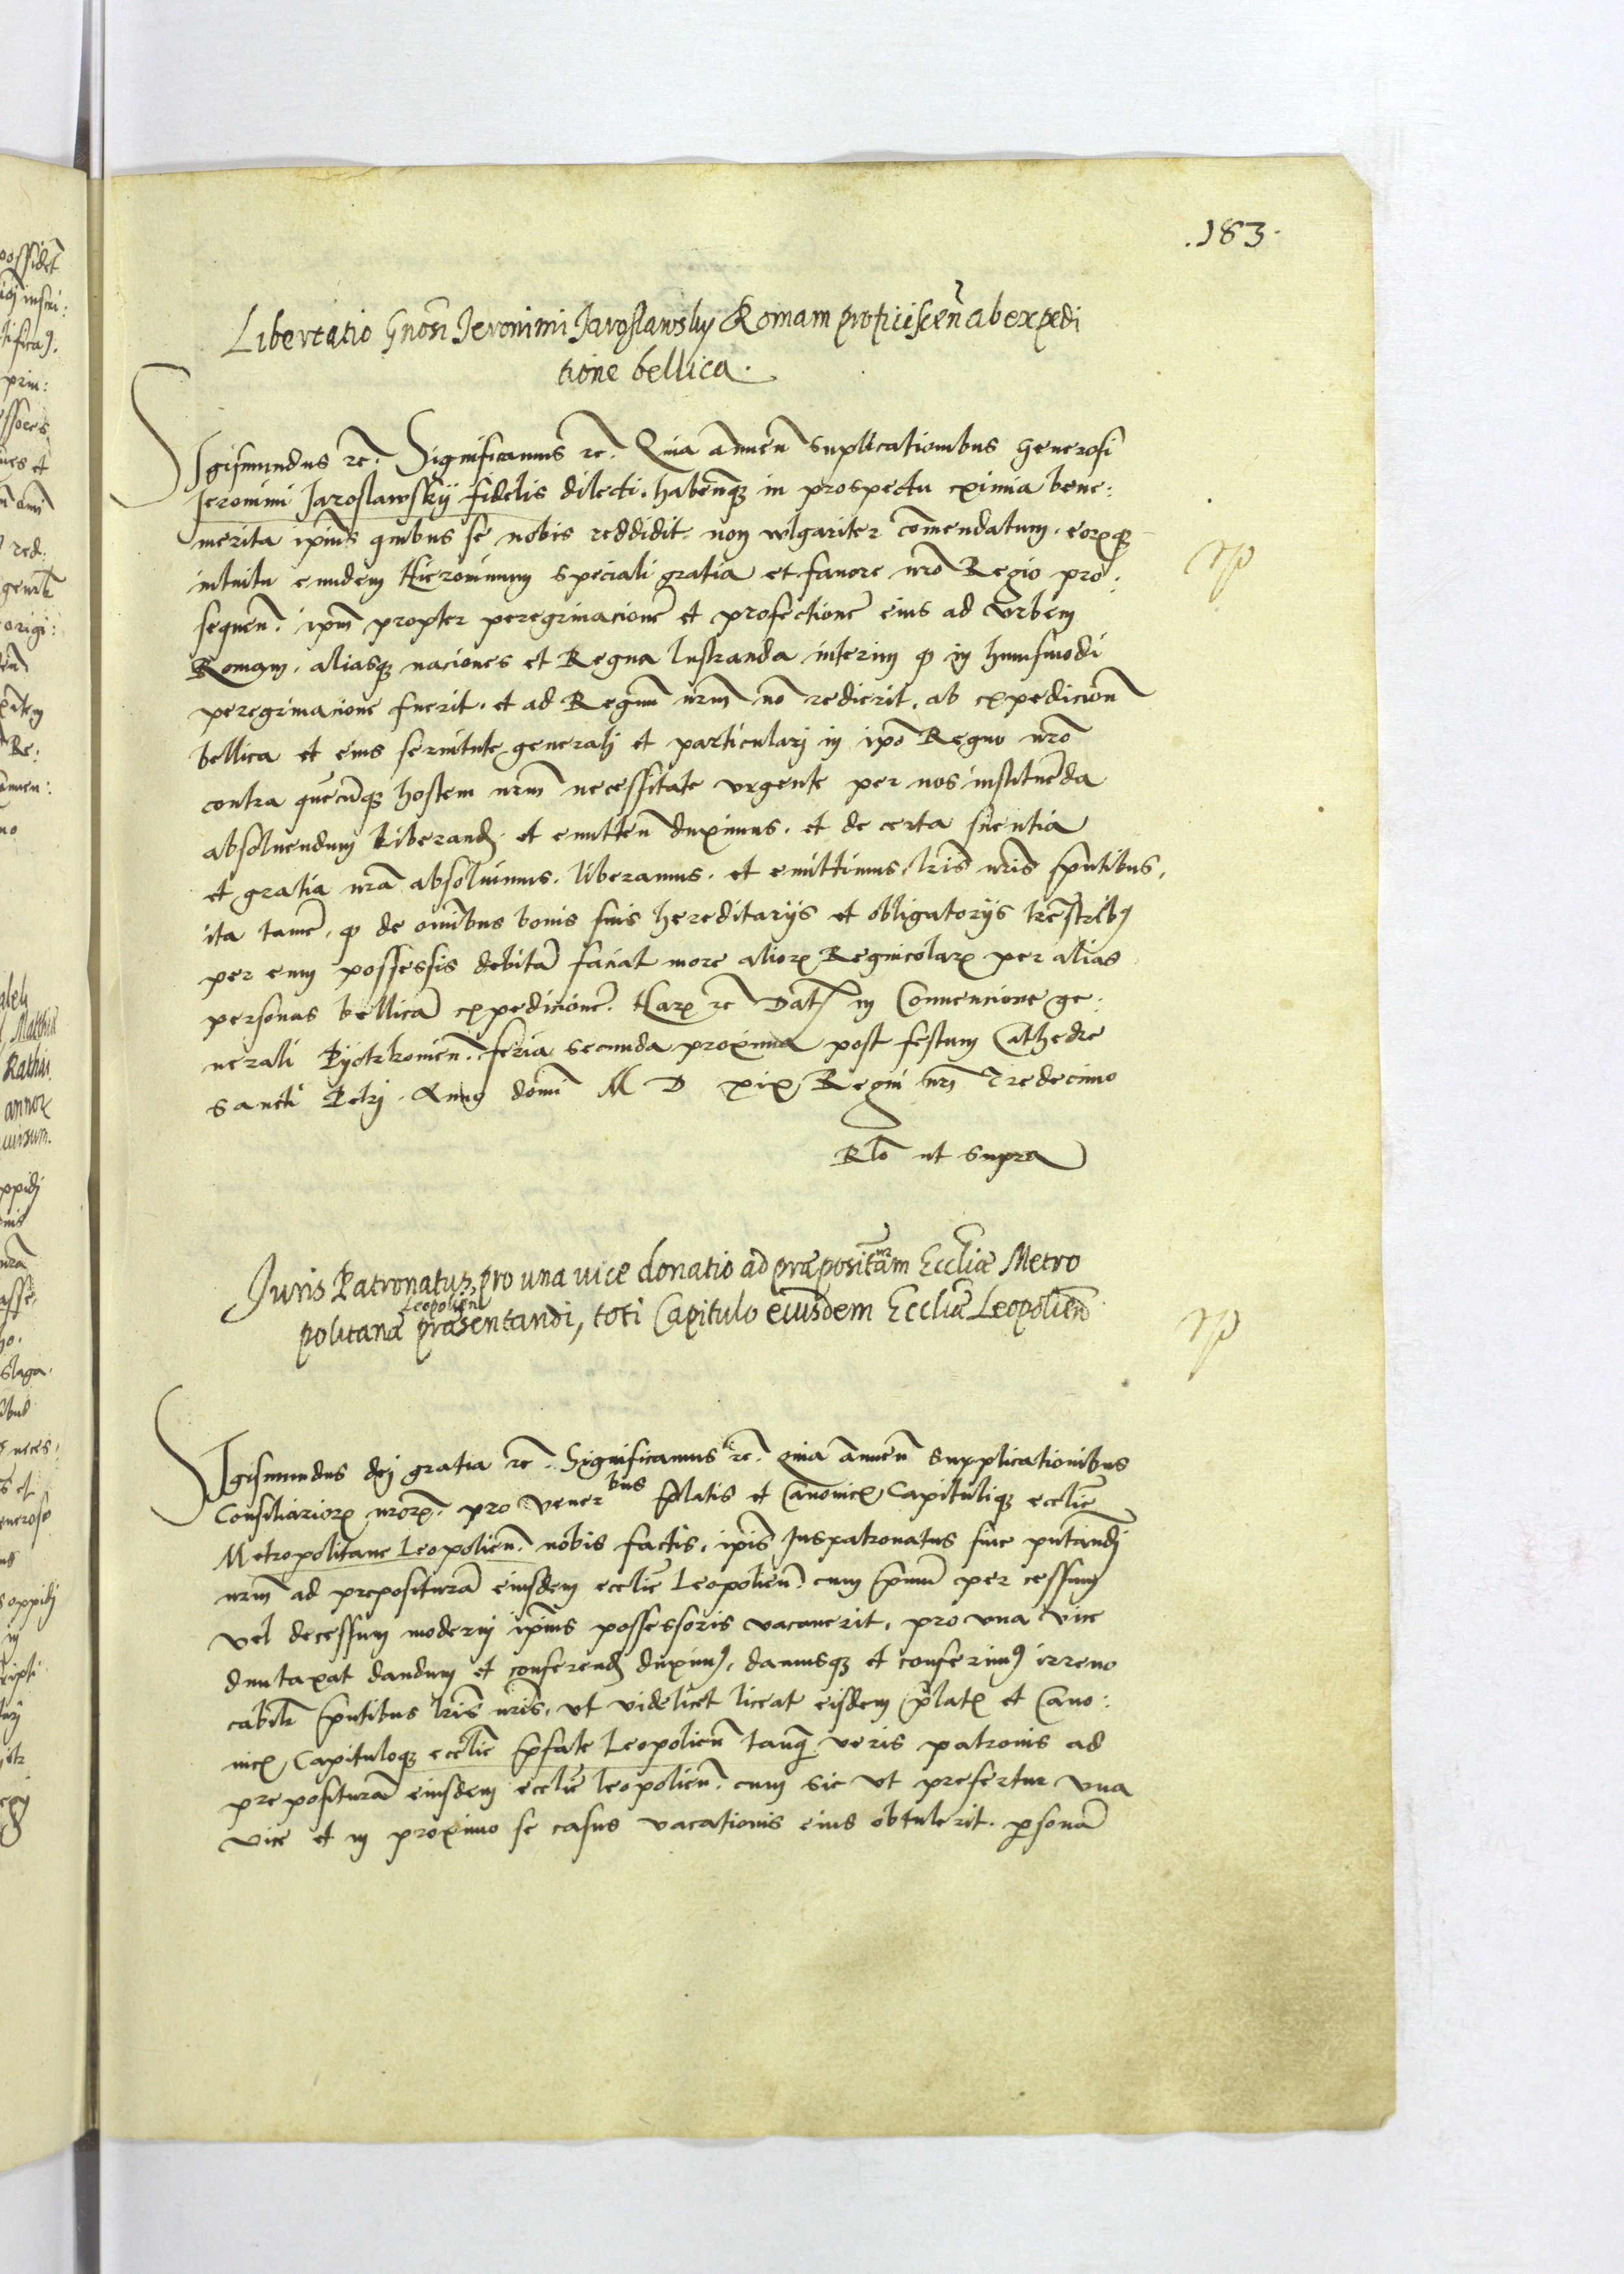 .183.
Libertatio Gnosi Jeronimi Jaroslawsky Romam proficiscen̄ ab expedi
tione bellica.
Sigismundus rc̄. Significamus rc̄. Quia annuen̄ supplicationibus Generosi
Jeronimi Jaroslawskij fidelis dilecti. habenq̃ in prospectu eximia bene:
merita ipīus quibus se nobis reddidit non vlgariter com̄endatum. eorꝫq̃
intuitu eundem Hieronimum speciali gratia et fauore nr̄o Regio pro:
sequen̄. ipm̄ propter peregrinacionē et profectionē eius ad Vrbem
Romam. aliasq̃ naciones et Regna lustranda interim ꝙ in huiusmodi
peregrinacione fuerit. et ad Regnū nrm̄ nō redierit. ab expedicion̄
bellica et eius seruitute generali et particulari in ipō Regno nr̄o
contra quēcūq̃ hostem nrm̄ necessitate vrgente per nos instituēda
absoluendum liberand̄ et emitten̄ duximus. et de certa sciētia
et gratia nr̄a absoluimus. liberamus. et emittimus, lris̄ nris̄ pn̄tibus,
ita tamē, ꝙ de om̄ibus bonis suis hereditarijs et obligatorijs trēstribꝫ
per eum possessis debitā faciat more aliorꝫ Regnicolarꝫ per alias
personas bellicā expedicionē. Harꝫ rc̄ Datꝫ in Conuencione ge:
nerali Pyotrkouien̄. feria secunda proxima post festum Cathedre
sancti Petri. Anno domī M D xix Regni nrī Tredecimo
Rlō ut supra
Juris Patronatus, pro una uice donatio ad præpositurām Eccliæ Metro
politanæ Leopolien̄ præsentandi, toti Capitulo eiusdem Eccliæ Leopolien̄
Sigismundus dei gratia rc̄. Significamus rc̄. quia annuen̄ supplicationibus
Consiliariorꝫ nrōrꝫ. pro Vener bus p̄latis et Canonicꝫ Capituliq̃ ecclīe
Metropolitane Leopolien̄. nobis factis, ipīs Juspatronatus siue pn̄tandi
nrm̄ ad preposituram eiusdem ecclīe Leopolien̄. cum p̄mum per cessum
vel decessum moderni ipīus possessoris vacauerit, pro vna vice
duntaxat dandum et conferend̄ duximꝫ, damusq̃ et conferimꝫ irreuo
cabilr̄ pn̄tibus lris̄ nris̄, vt videlicet liceat eisdem p̄latꝫ et Cano:
nicꝫ, Capituloq̃ ecclīe p̄fate Leopolien̄ tanq̃ veris patronis ad
preposituram eiusdem ecclīe leopolien̄. cum sic vt prefertur vna
vice et in proximo se casus vacationis eius obtulerit. personā